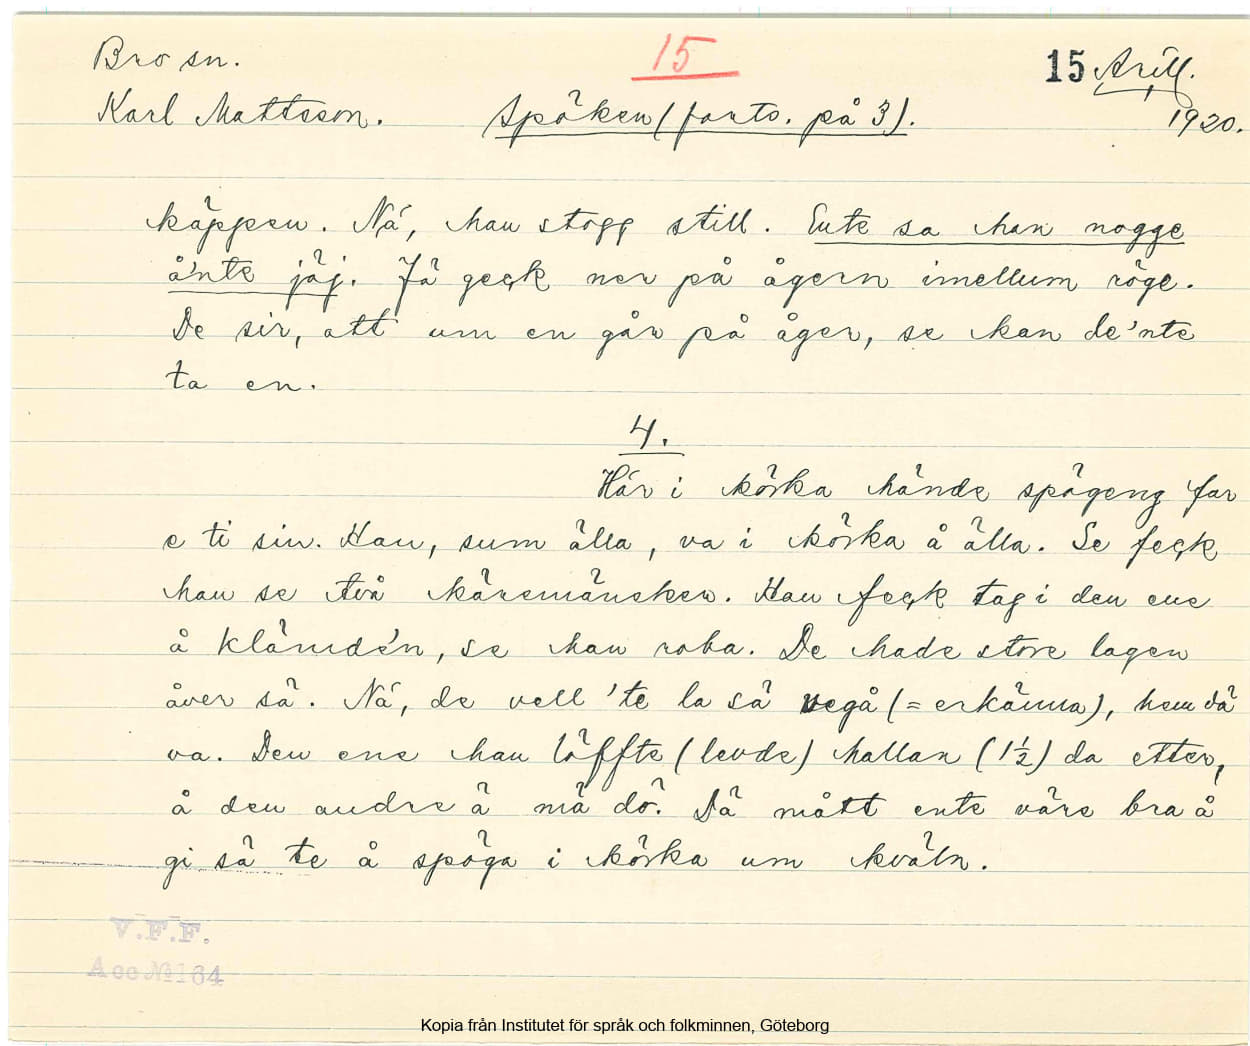 Bro sn.
15
15 Arill.
Karl Mattsson.
Spöken (forts. på 3).
1920.
käppen. Ná, han stogg still. Ente sa han nogge
å'nte jäj. Jä geck ner på ågern imellum röge.
De sir, att um en går på åger, se kan de'nte
ta en.
4.
Här i körka hände spögeng far
e ti sin. Han, sum älla, va i körka å älla. Se feck
han se två käremänsker. Han feck tag i den ene
å klämde'n, se han roba. De hade store lagen
åver sä. Ná, de vell 'te la sä vegå (= erkänna), hem dä
va. Den ene han löffte (levde) hallan (1½) da etter,
å den andre ä mä dö. Dä mått ente väre bra å
gi sä te å spöga i körka um kväln.
V.F.F.
Acc № 164
Kopia från Institutet för språk och folkminnen, Göteborg